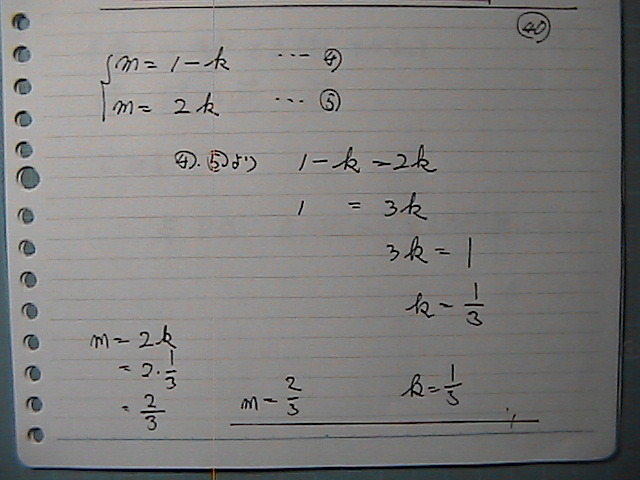 ㊵
m = 1 - k ... ④
m = 2k ... ⑤
④.⑤より 1 - k = 2k
1 = 3k
3k = 1
k = 1/3
m = 2k
= 2・1/3
= 2/3
m = 2/3 k = 1/3